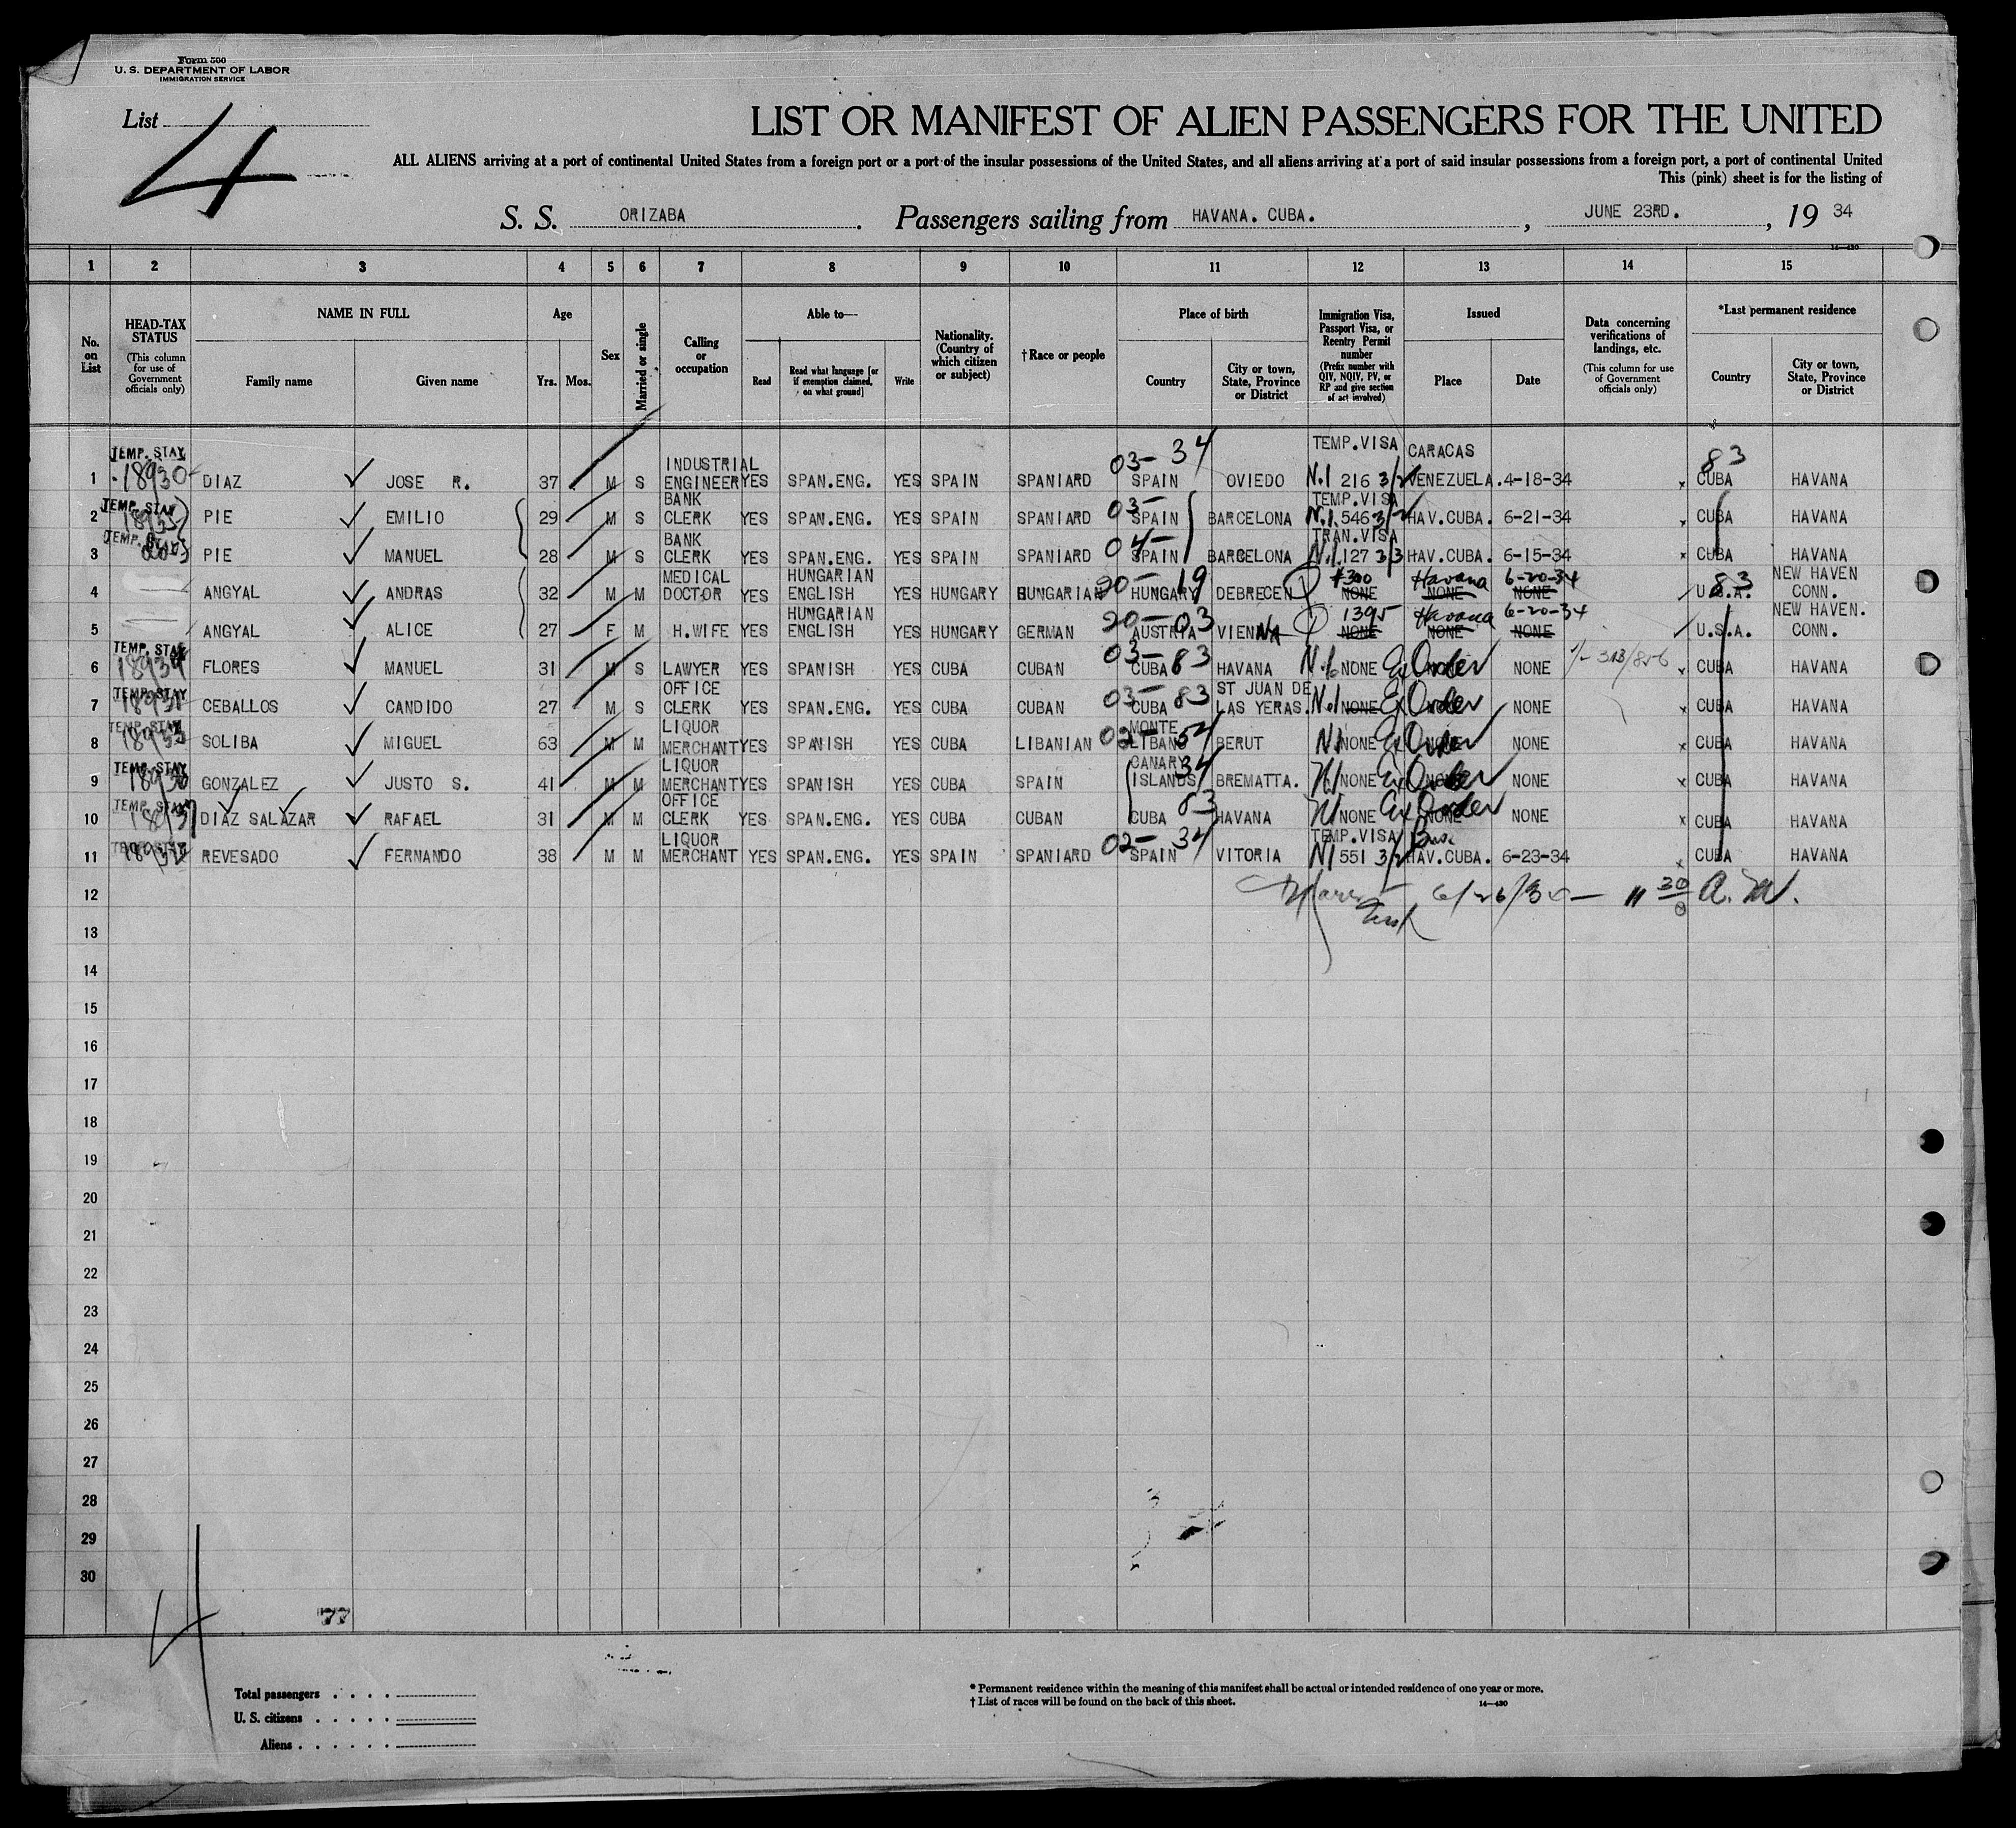 Form 500
U. S. DEPARTMENT OF LABOR
IMMIGRATION SERVICE
List 4
LIST OR MANIFEST OF ALIEN PASSENGERS FOR THE UNITED
ALL ALIENS arriving at a port of continental United States from a foreign port or a port of the insular possessions of the United States, and all aliens arriving at a port of said insular possessions from a foreign port, a port of continental United
This (pink) sheet is for the listing of
S. S. ORIZABA. Passengers sailing from HAVANA. CUBA., JUNE 23RD., 19 34
14-430
1 2 3 4 5 6 7 8 9 10 11 12 13 14 15
No. on List
HEAD-TAX STATUS (This column for use of Government officials only)
NAME IN FULL Family name Given name
Age Yrs. Mos.
Sex
Married or single
Calling or occupation
Able to— Read Read what language [or if exemption claimed, on what ground] Write
Nationality. (Country of which citizen or subject)
†Race or people
Place of birth Country City or town, State, Province or District
Immigration Visa, Passport Visa, or Reentry Permit number (Prefix number with QIV, NQIV, PV, or RP and give section of act involved)
Issued Place Date
Data concerning verifications of landings, etc. (This column for use of Government officials only)
*Last permanent residence Country City or town, State, Province or District
1 TEMP. STAY 18930 DIAZ JOSE R. 37 M S INDUSTRIAL ENGINEER YES SPAN.ENG. YES SPAIN SPANIARD 03-34 SPAIN OVIEDO TEMP.VISA N.1 216 3/2 CARACAS VENEZUELA. 4-18-34 83 CUBA HAVANA
2 TEMP. STAY PIE EMILIO 29 M S BANK CLERK YES SPAN.ENG. YES SPAIN SPANIARD 03- SPAIN BARCELONA TEMP.VISA N.1. 546 3/2 HAV.CUBA. 6-21-34 CUBA HAVANA
3 TEMP. STAY PIE MANUEL 28 M S BANK CLERK YES SPAN.ENG. YES SPAIN SPANIARD 04- SPAIN BARCELONA TRAN.VISA N.1. 127 3/3 HAV.CUBA. 6-15-34 CUBA HAVANA
4 ANGYAL ANDRAS 32 M M MEDICAL DOCTOR YES HUNGARIAN ENGLISH YES HUNGARY HUNGARIAN 20-19 HUNGARY DEBRECEN #300 NONE Havana NONE 6-20-34 NONE 83 U.S.A. NEW HAVEN CONN.
5 ANGYAL ALICE 27 F M H.WIFE YES HUNGARIAN ENGLISH YES HUNGARY GERMAN 20-03 AUSTRIA VIENNA 1395 NONE Havana NONE 6-20-34 NONE U.S.A. NEW HAVEN. CONN.
6 TEMP. STAY 18934 FLORES MANUEL 31 M S LAWYER YES SPANISH YES CUBA CUBAN 03-83 CUBA HAVANA NONE Ex Order NONE NONE CUBA HAVANA
7 TEMP. STAY CEBALLOS CANDIDO 27 M S OFFICE CLERK YES SPAN.ENG. YES CUBA CUBAN 03-83 CUBA ST JUAN DE LAS YERAS. N.1 NONE Ex Order NONE CUBA HAVANA
8 TEMP. STAY SOLIBA MIGUEL 63 M M LIQUOR MERCHANT YES SPANISH YES CUBA LIBANIAN MONTE LIBANO BERUT N1 NONE Ex Order NONE NONE CUBA HAVANA
9 TEMP. STAY GONZALEZ JUSTO S. 41 M M LIQUOR MERCHANT YES SPANISH YES CUBA SPAIN CANARY ISLANDS 34 BREMATTA. N1 NONE Ex Order NONE NONE CUBA HAVANA
10 TEMP. STAY DIAZ SALAZAR RAFAEL 31 M M OFFICE CLERK YES SPAN.ENG. YES CUBA CUBAN 83 CUBA HAVANA N1 NONE Ex Order NONE NONE CUBA HAVANA
11 REVESADO FERNANDO 38 M M LIQUOR MERCHANT YES SPAN.ENG. YES SPAIN SPANIARD 02-34 SPAIN VITORIA TEMP.VISA N1 551 3/2 HAV.CUBA. 6-23-34 CUBA HAVANA
12 11 30 A. M.
13
14
15
16
17
18
19
20
21
22
23
24
25
26
27
28
29
30
4
77
Total passengers
U. S. citizens
Aliens
* Permanent residence within the meaning of this manifest shall be actual or intended residence of one year or more.
† List of races will be found on the back of this sheet. 14-430